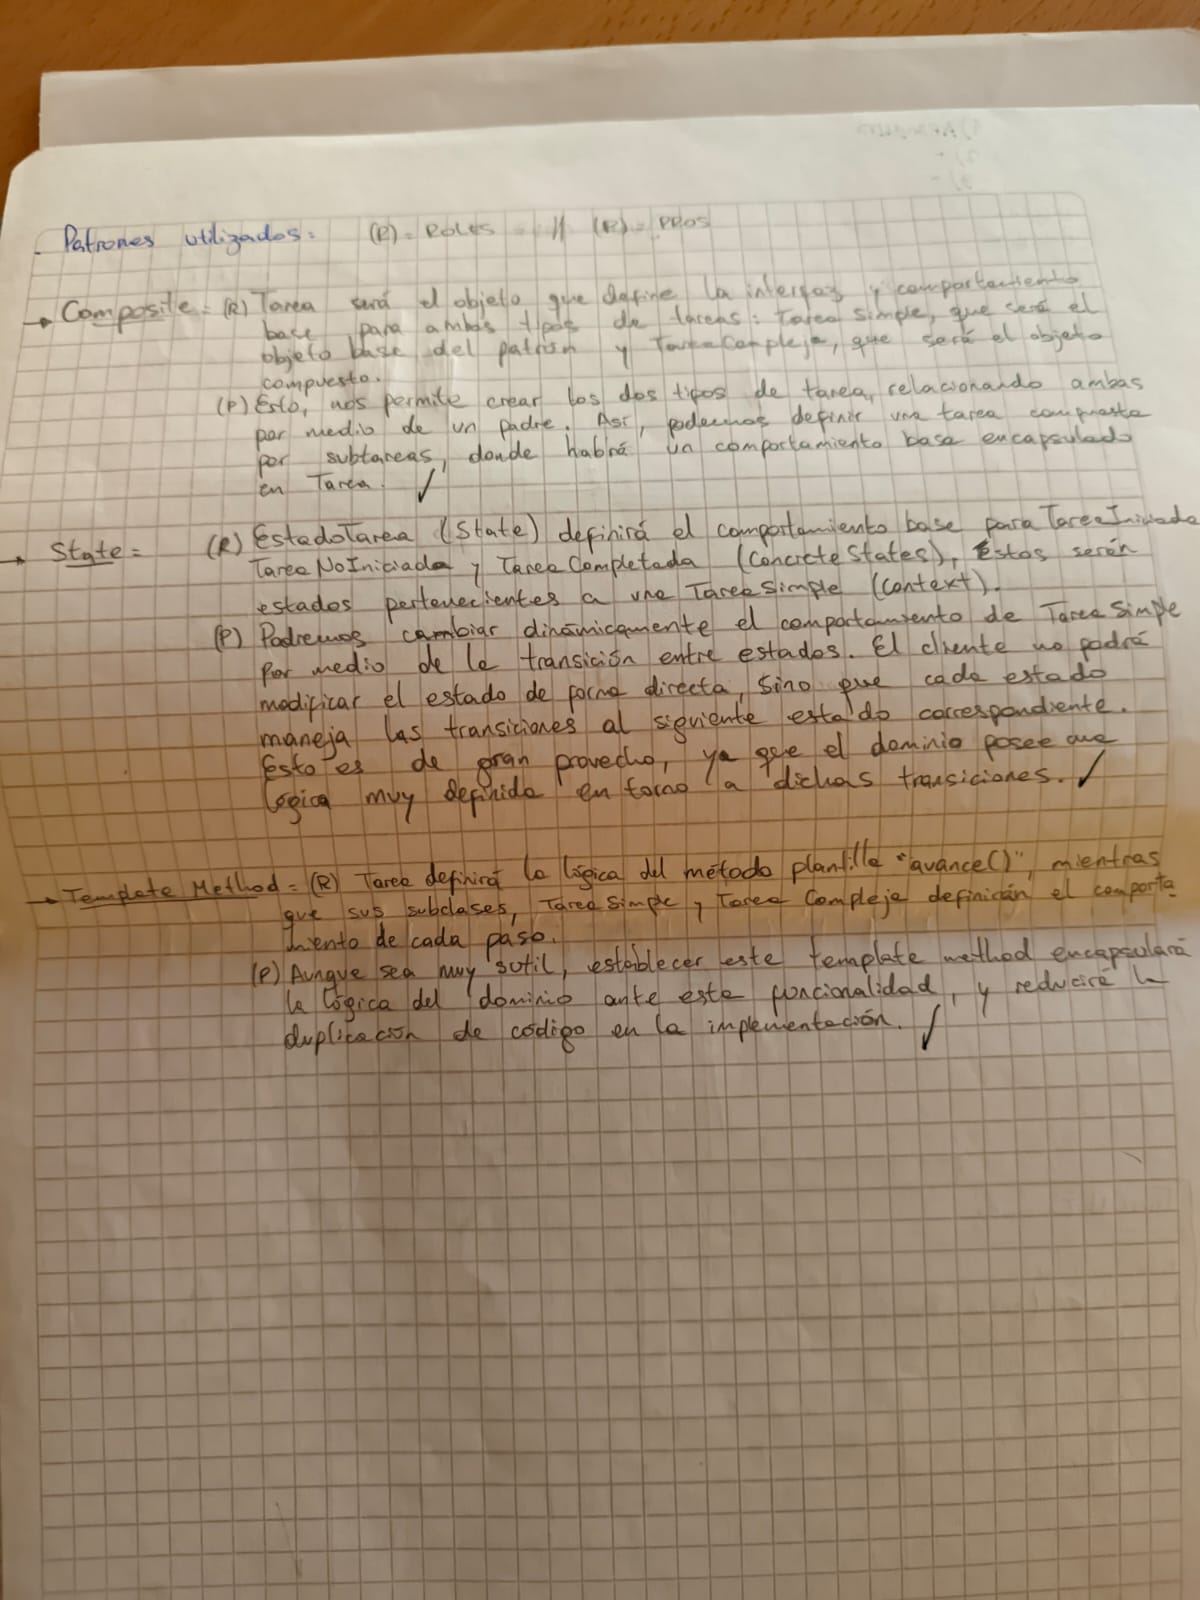 - Patrones utilizados: (R) = ROLES // (P) = PROS
→ Composite: (R) Tarea será el objeto que define la interfaz y comportamiento
base para ambos tipos de tareas: Tarea Simple, que será el
objeto base del patrón y TareaCompleja, que será el objeto
compuesto.
(P) Esto, nos permite crear los dos tipos de tarea, relacionando ambas
por medio de un padre. Así, podemos definir una tarea compuesta
por subtareas, donde habrá un comportamiento base encapsulado
en Tarea. ✓
→ State = (R) EstadoTarea (State) definirá el comportamiento base para TareaIniciada
TareaNoIniciada y TareaCompletada (ConcreteStates), Estos serán
estados pertenecientes a una TareaSimple (Context).
(P) Podremos cambiar dinámicamente el comportamiento de TareaSimple
por medio de la transición entre estados. El cliente no podrá
modificar el estado de forma directa, sino que cada estado
maneja las transiciones al siguiente estado correspondiente.
Esto es de gran provecho, ya que el dominio posee una
lógica muy definida en torno a dichas transiciones. ✓
→ Template Method = (R) Tarea definirá la lógica del método plantilla "avance()", mientras
que sus subclases, TareaSimple y Tarea Compleja definirán el comporta-
miento de cada paso.
(P) Aunque sea muy sutil, establecer este template method encapsulará
la lógica del dominio ante esta funcionalidad, y reducirá la
duplicación de código en la implementación. ✓